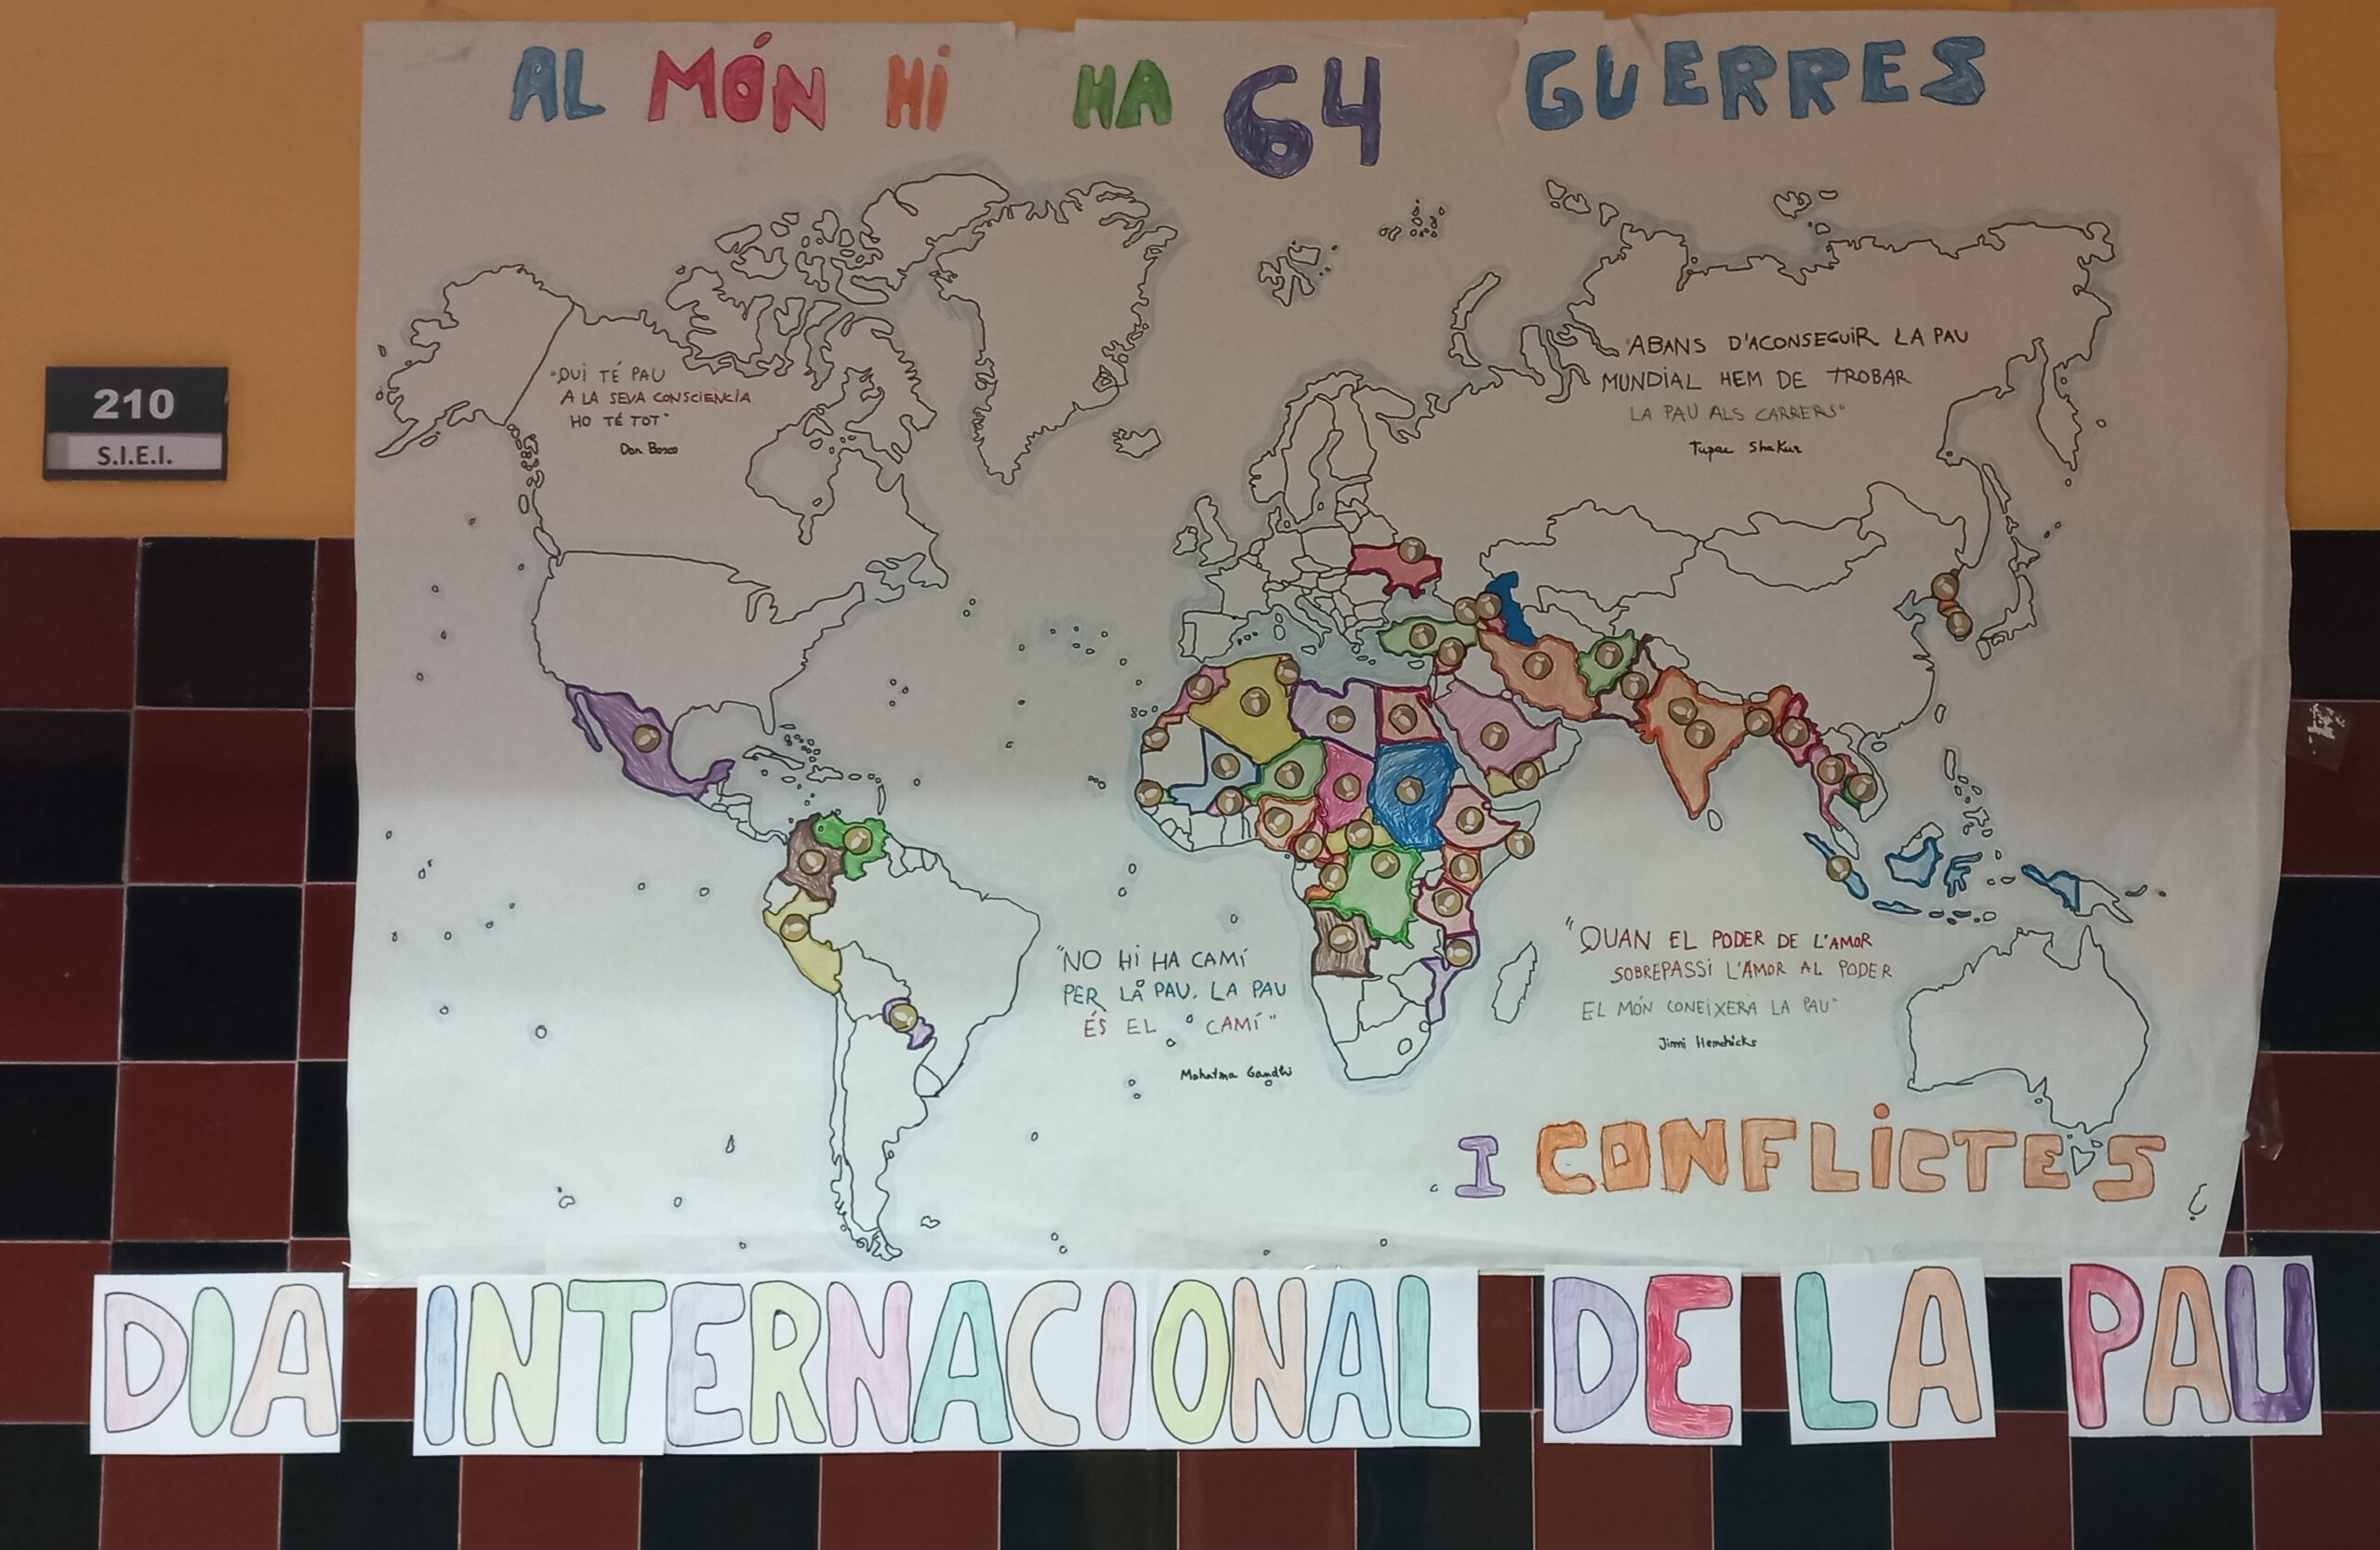 AL MÓN Hi HA 64 GUERRES
210
S.I.E.I.
"QUI TÉ PAU
A LA SEVA CONSCIENCIA
HO TÉ TOT"
Don Bosco
"ABANS D'ACONSEGUIR LA PAU
MUNDIAL HEM DE TROBAR
LA PAU ALS CARRERS"
Tupac Shakur
"NO Hi HA CAMÍ
PER LA PAU. LA PAU
ÉS EL CAMÍ"
Mahatma Gandhi
"QUAN EL PODER DE L'AMOR
SOBREPASSI L'AMOR AL PODER
EL MÓN CONEIXERÀ LA PAU"
Jimi Hendricks
I CONFLiCTES
DIA INTERNACIONAL DE LA PAU